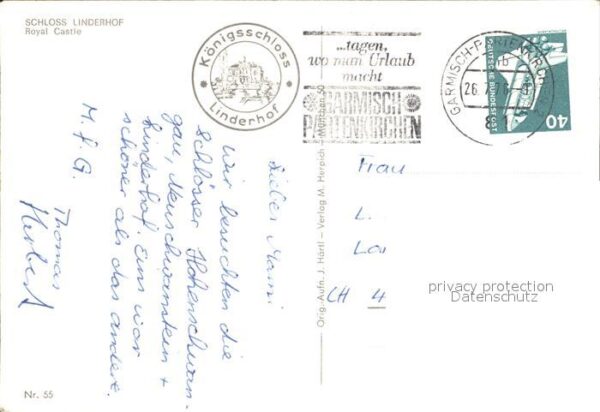 SCHLOSS LINDERHOF
Royal Castle
Königsschloss
Linderhof
...tagen,
wo man Urlaub
macht
GARMISCH
PARTENKIRCHEN
GARMISCH-PARTENKIRCHEN
26.7.76
DEUTSCHE BUNDESPOST
40
Liebe Mami
Wir besuchten die
Schlösser Hohenschwan-
gau, Neuschwanstein +
Linderhof. Eins war
schöner als das andere.
M. f. G.
Thomas
Herbert
Orig.-Aufn. J. Härtl – Verlag M. Herpich
Frau
L.
CH 4
privacy protection
Datenschutz
Nr. 55